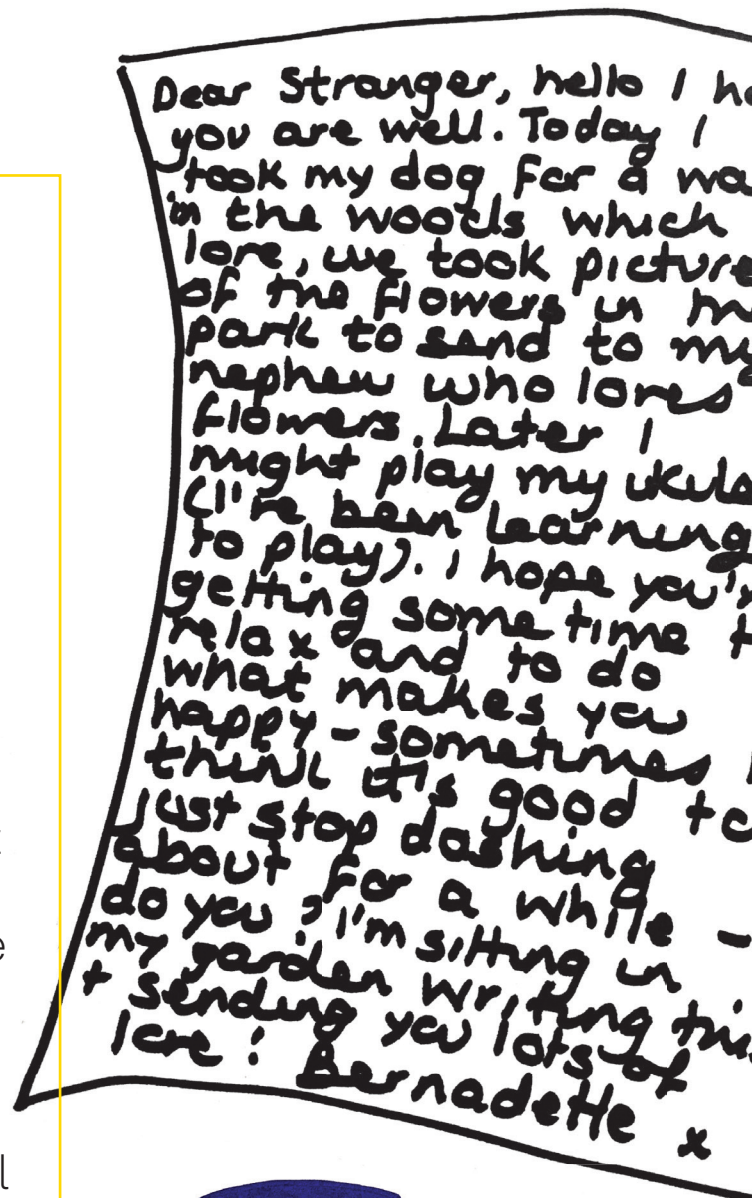 Dear Stranger, hello I ho
you are well. Today I
took my dog for a wa
in the woods which
love, we took picture
of the flowers in m
park to send to my
nephew who loves
flowers. Later I
might play my ukule
(I've been learning
to play). I hope you'r
getting some time t
relax and to do
what makes you
happy - sometimes I
think it's good to
just stop dashing
about for a while -
do you? I'm sitting in
my garden writing this
+ sending you lots of
love! Bernadette x
e
l